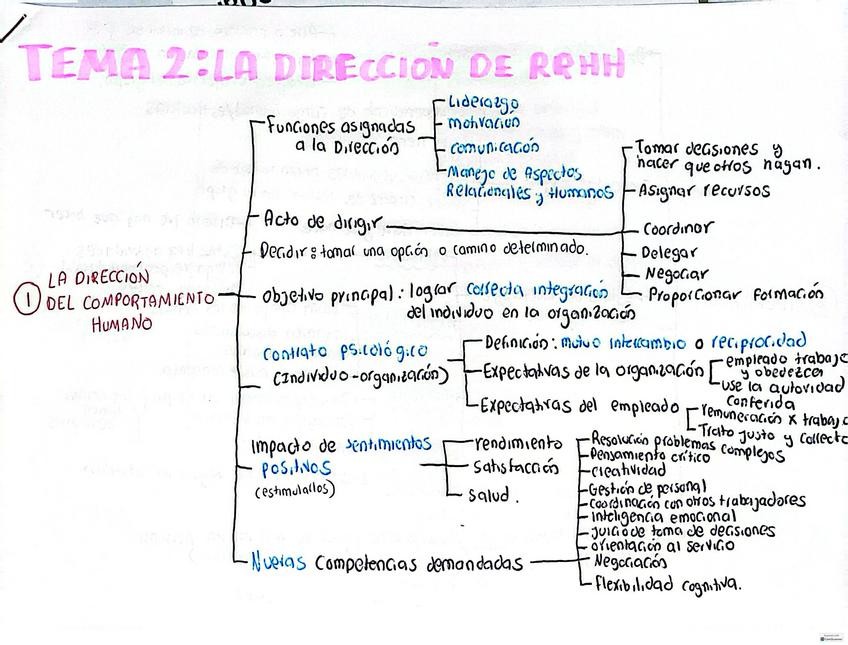 TEMA 2: LA DIRECCIÓN DE RRHH
Funciones asignadas
a la Dirección
Liderazgo
motivación
comunicación
Manejo de Aspectos
Relacionales y Humanos
Acto de dirigir
Tomar decisiones y
hacer que otros hagan.
Asignar recursos
Coordinar
Delegar
Negociar
Proporcionar Formación
Decidir: tomar una opción o camino determinado.
1 LA DIRECCIÓN
DEL COMPORTAMIENTO
HUMANO
objetivo principal: lograr correcta integración
del individuo en la organización
contrato psicológico
(Individuo-organización)
Definición: mutuo intercambio o reciprocidad
Expectativas de la organización
empleado trabaje
y obedezca
use la autoridad
conferida
Expectativas del empleado
remuneración x trabajo
Trato justo y correcto
Impacto de sentimientos
positivos
(estimularlos)
rendimiento
satisfacción
salud.
Nuevas Competencias demandadas
Resolución problemas complejos
Pensamiento crítico
creatividad
Gestión de personal
coordinación con otros trabajadores
inteligencia emocional
juicio de toma de decisiones
orientación al servicio
Negociación
Flexibilidad cognitiva.